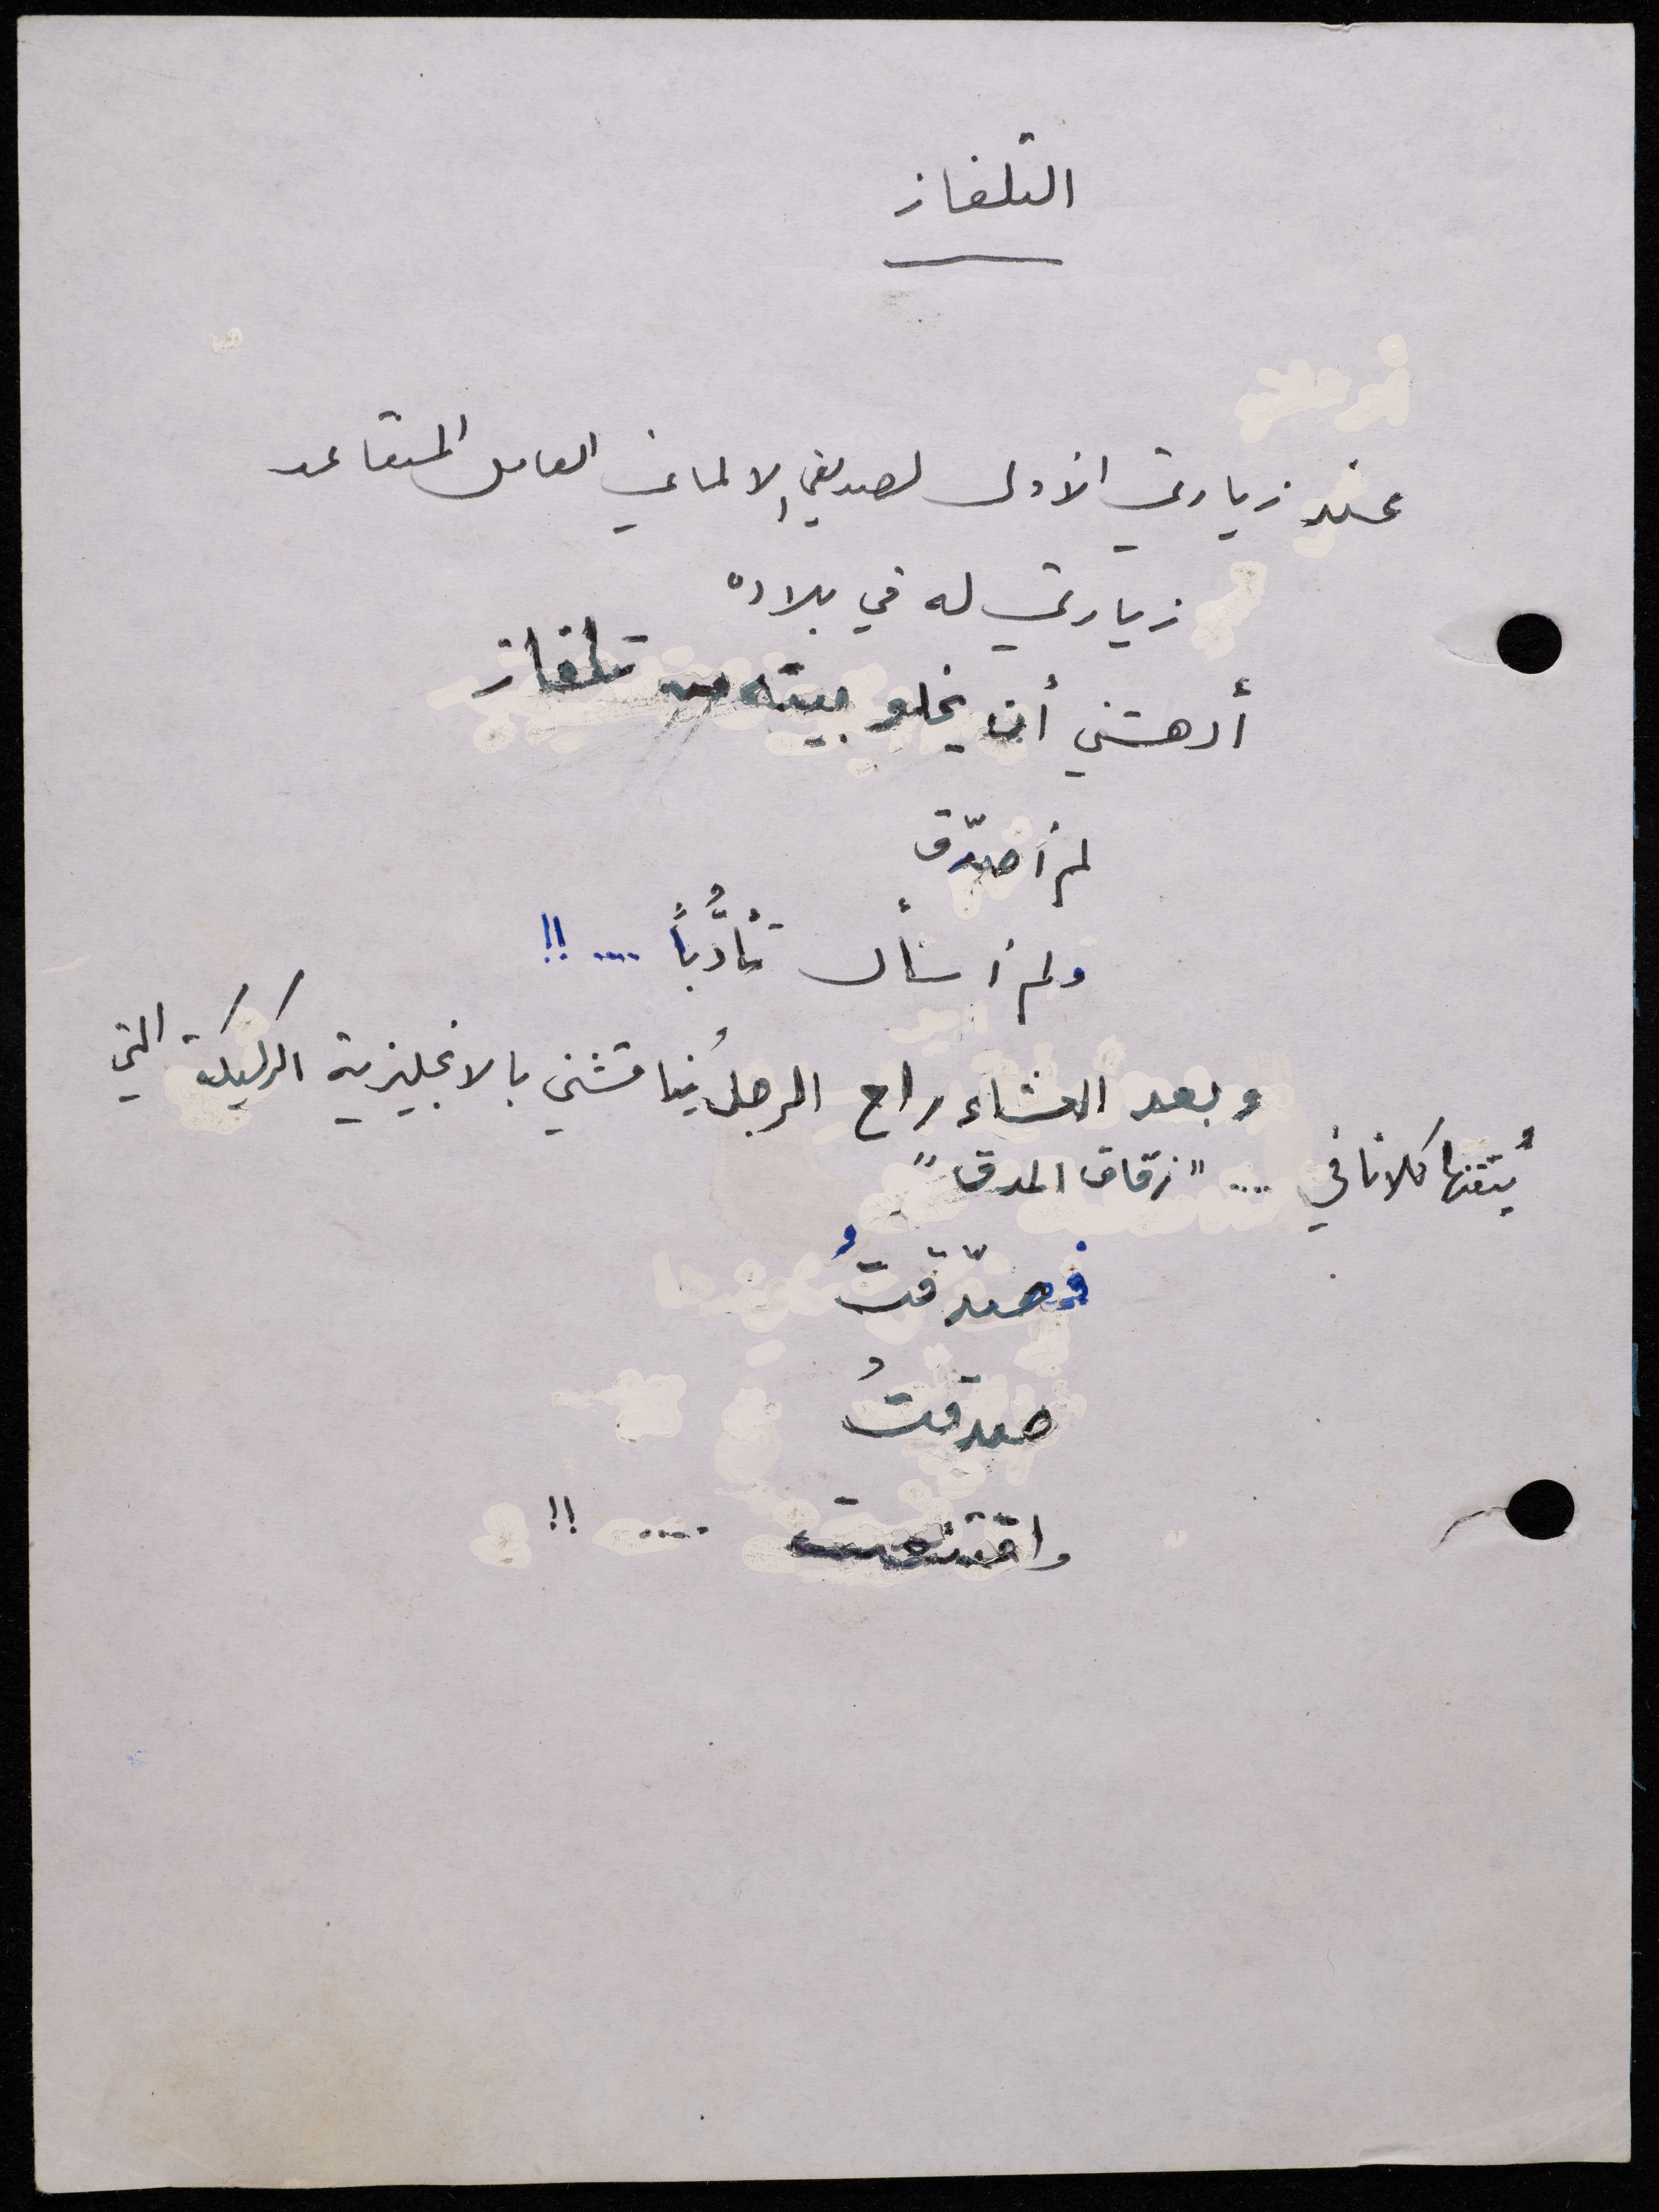 التلفاز
عند زيارتي الأولى لصديقي الالماني العامل المتقاعد
زيارتي له في بلاده
أدهشني أن يخلو بيته من تلفاز
لم أصدّق
ولم أسأل تأدُّباً .... !!
وبعد العشاء راح الرجلُ يُناقشني بالانجليزية الركيكة التي
يُتقنها كلانا في .... "زقاق المدق"
فصدّقتُ
صدقتُ
واقتنعت ..... !!